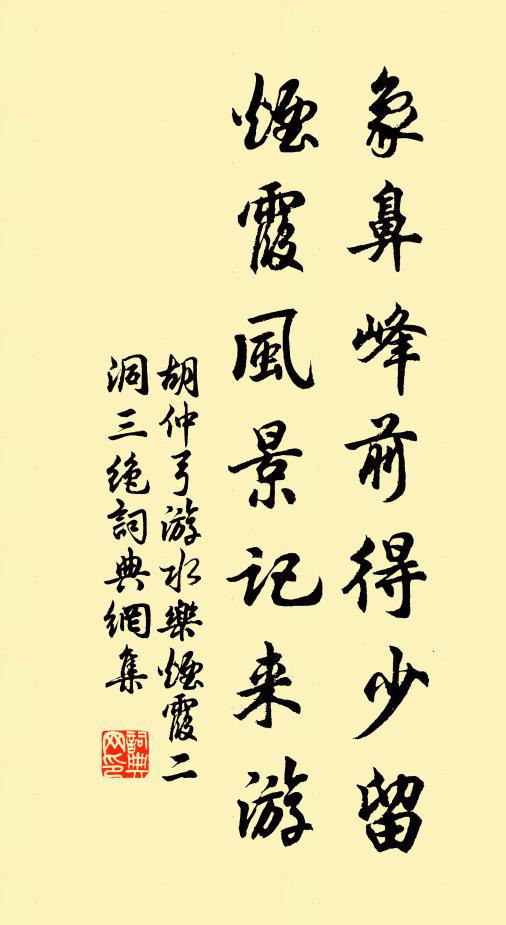 象鼻峰前得少留
煙霞風景記来游
胡仲弓游水樂煙霞二
洞三絶詞典網集
詞典網印